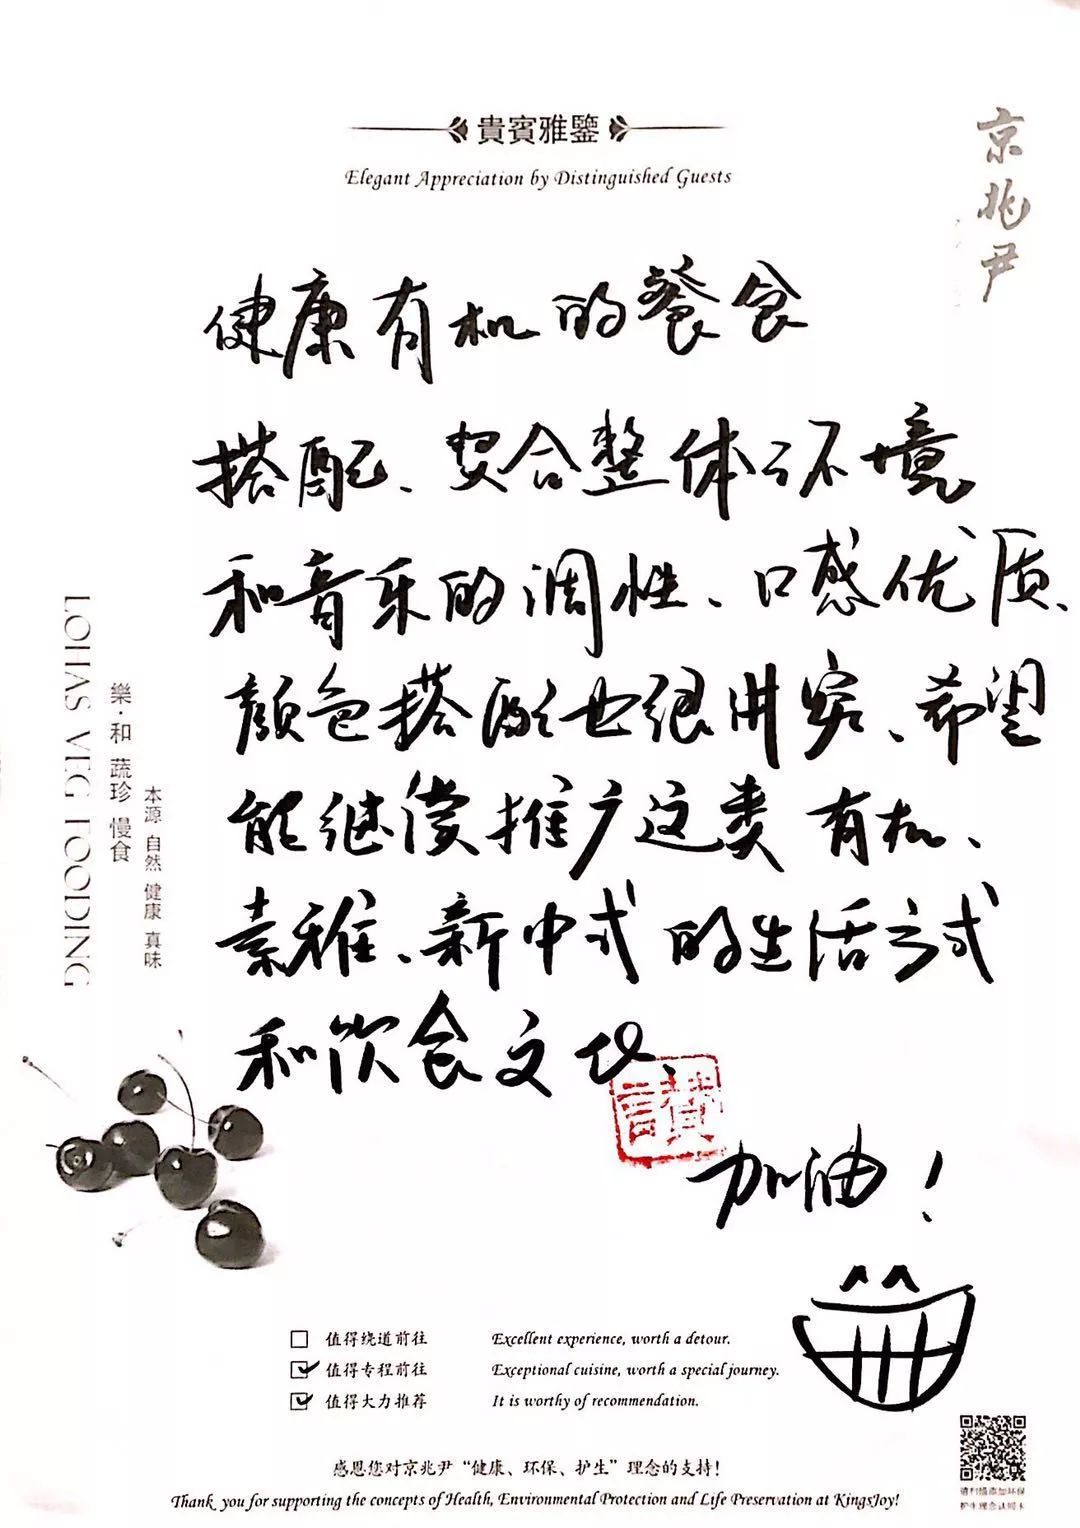 貴賓雅鑒
Elegant Appreciation by Distinguished Guests
京兆尹
健康有机的餐食
搭配、契合整体环境
和音乐的调性、口感优质、
颜色搭配也很讲究、希望
能继续推广这类有机、
素雅、新中式的生活方式
和饮食文化、
讃
加油！
LOHAS VEG FOODING
樂·和 蔬珍 慢食
本源 自然 健康 真味
值得绕道前往 Excellent experience, worth a detour.
值得专程前往 Exceptional cuisine, worth a special journey.
值得大力推荐 It is worthy of recommendation.
请扫描添加环保
护生理念认同卡
感恩您对京兆尹“健康、环保、护生”理念的支持！
Thank you for supporting the concepts of Health, Environmental Protection and Life Preservation at KingsJoy!